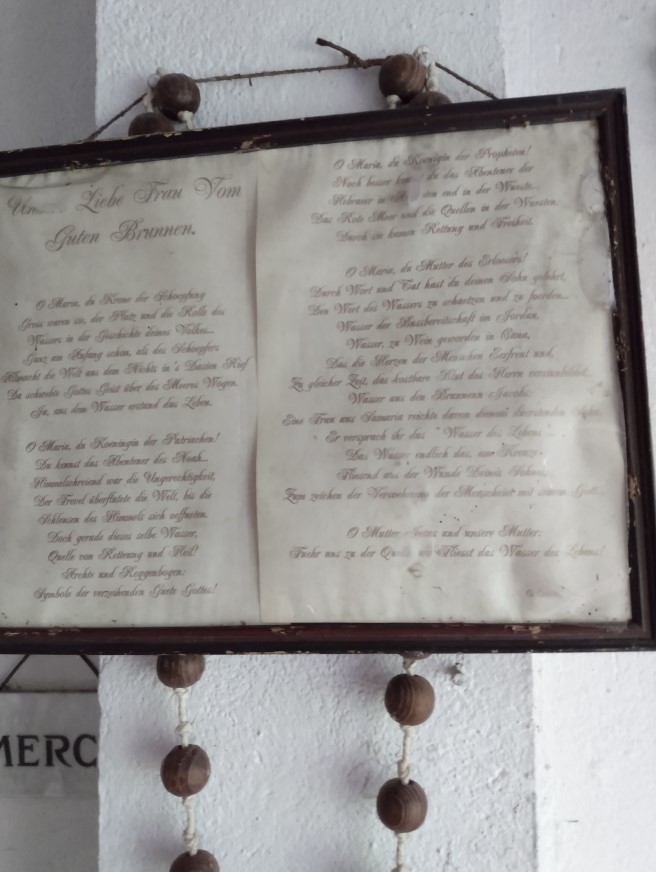 Liebe Frau Vom
Guten Brunnen.
O Maria, du Krone der Schoepfung
Gross waren sie, der Platz und die Rolle des
Wassers in der Geschichte deines Volkes...
Ganz am Anfang schon, als des Schoepfers
Allmacht die Welt aus dem Nichts in's Dasien Rief
Da schwebte Gottes Geist über des Meeres Wogen.
Ja, aus dem Wasser entstand das Leben.
O Maria, du Koeningin der Patriachen!
Du kennst das Abenteuer des Noah...
Himmelschreiend war die Ungerechtigkeit,
Der Frevel überflutete die Welt, bis die
Schleusen des Himmels sich oeffneten.
Doch gerade dieses selbe Wasser,
Quelle von Rettung und Heil!
Archte und Regenbogen:
Symbole der verzeihenden Guete Gottes!
O Maria, du Koenigin der Propheten!
Noch besser du das Abenteuer der
Hebraeer in und in der Wueste...
Das Rote Meer und die Quellen in der Wuesten:
Durch sie kamen Rettung und Freiheit.
O Maria, du Mutter des Erloesers!
Durch Wort und Tat hast du deinen Sohn gelehrt,
Den Wert des Wassers zu schaetzen und zu foerden...
Wasser der Bussbereitschaft im Jordan,
Wasser, zu Wein geworden in Cana,
Das die Herzen der Menschen Erfreut und,
Zu gleicher Zeit, das kostbare Blut des Herrn
Wasser aus den Brunnenn Jacobs:
Eine Frau aus Samaria reichte davon deinem duerstenden
Er versprach ihr das "Wasser des Lebens"...
Das Wasser endlich das, am Kreuze
Fliessend aus der Wunde Deines Sohnes,
Zum zeichen der Versoehnung der Menscheit mit seinem Gott...
O Mutter und unsere Mutter:
Fuehr uns zu der Fliesst das Wasser des Lebens!
MERC